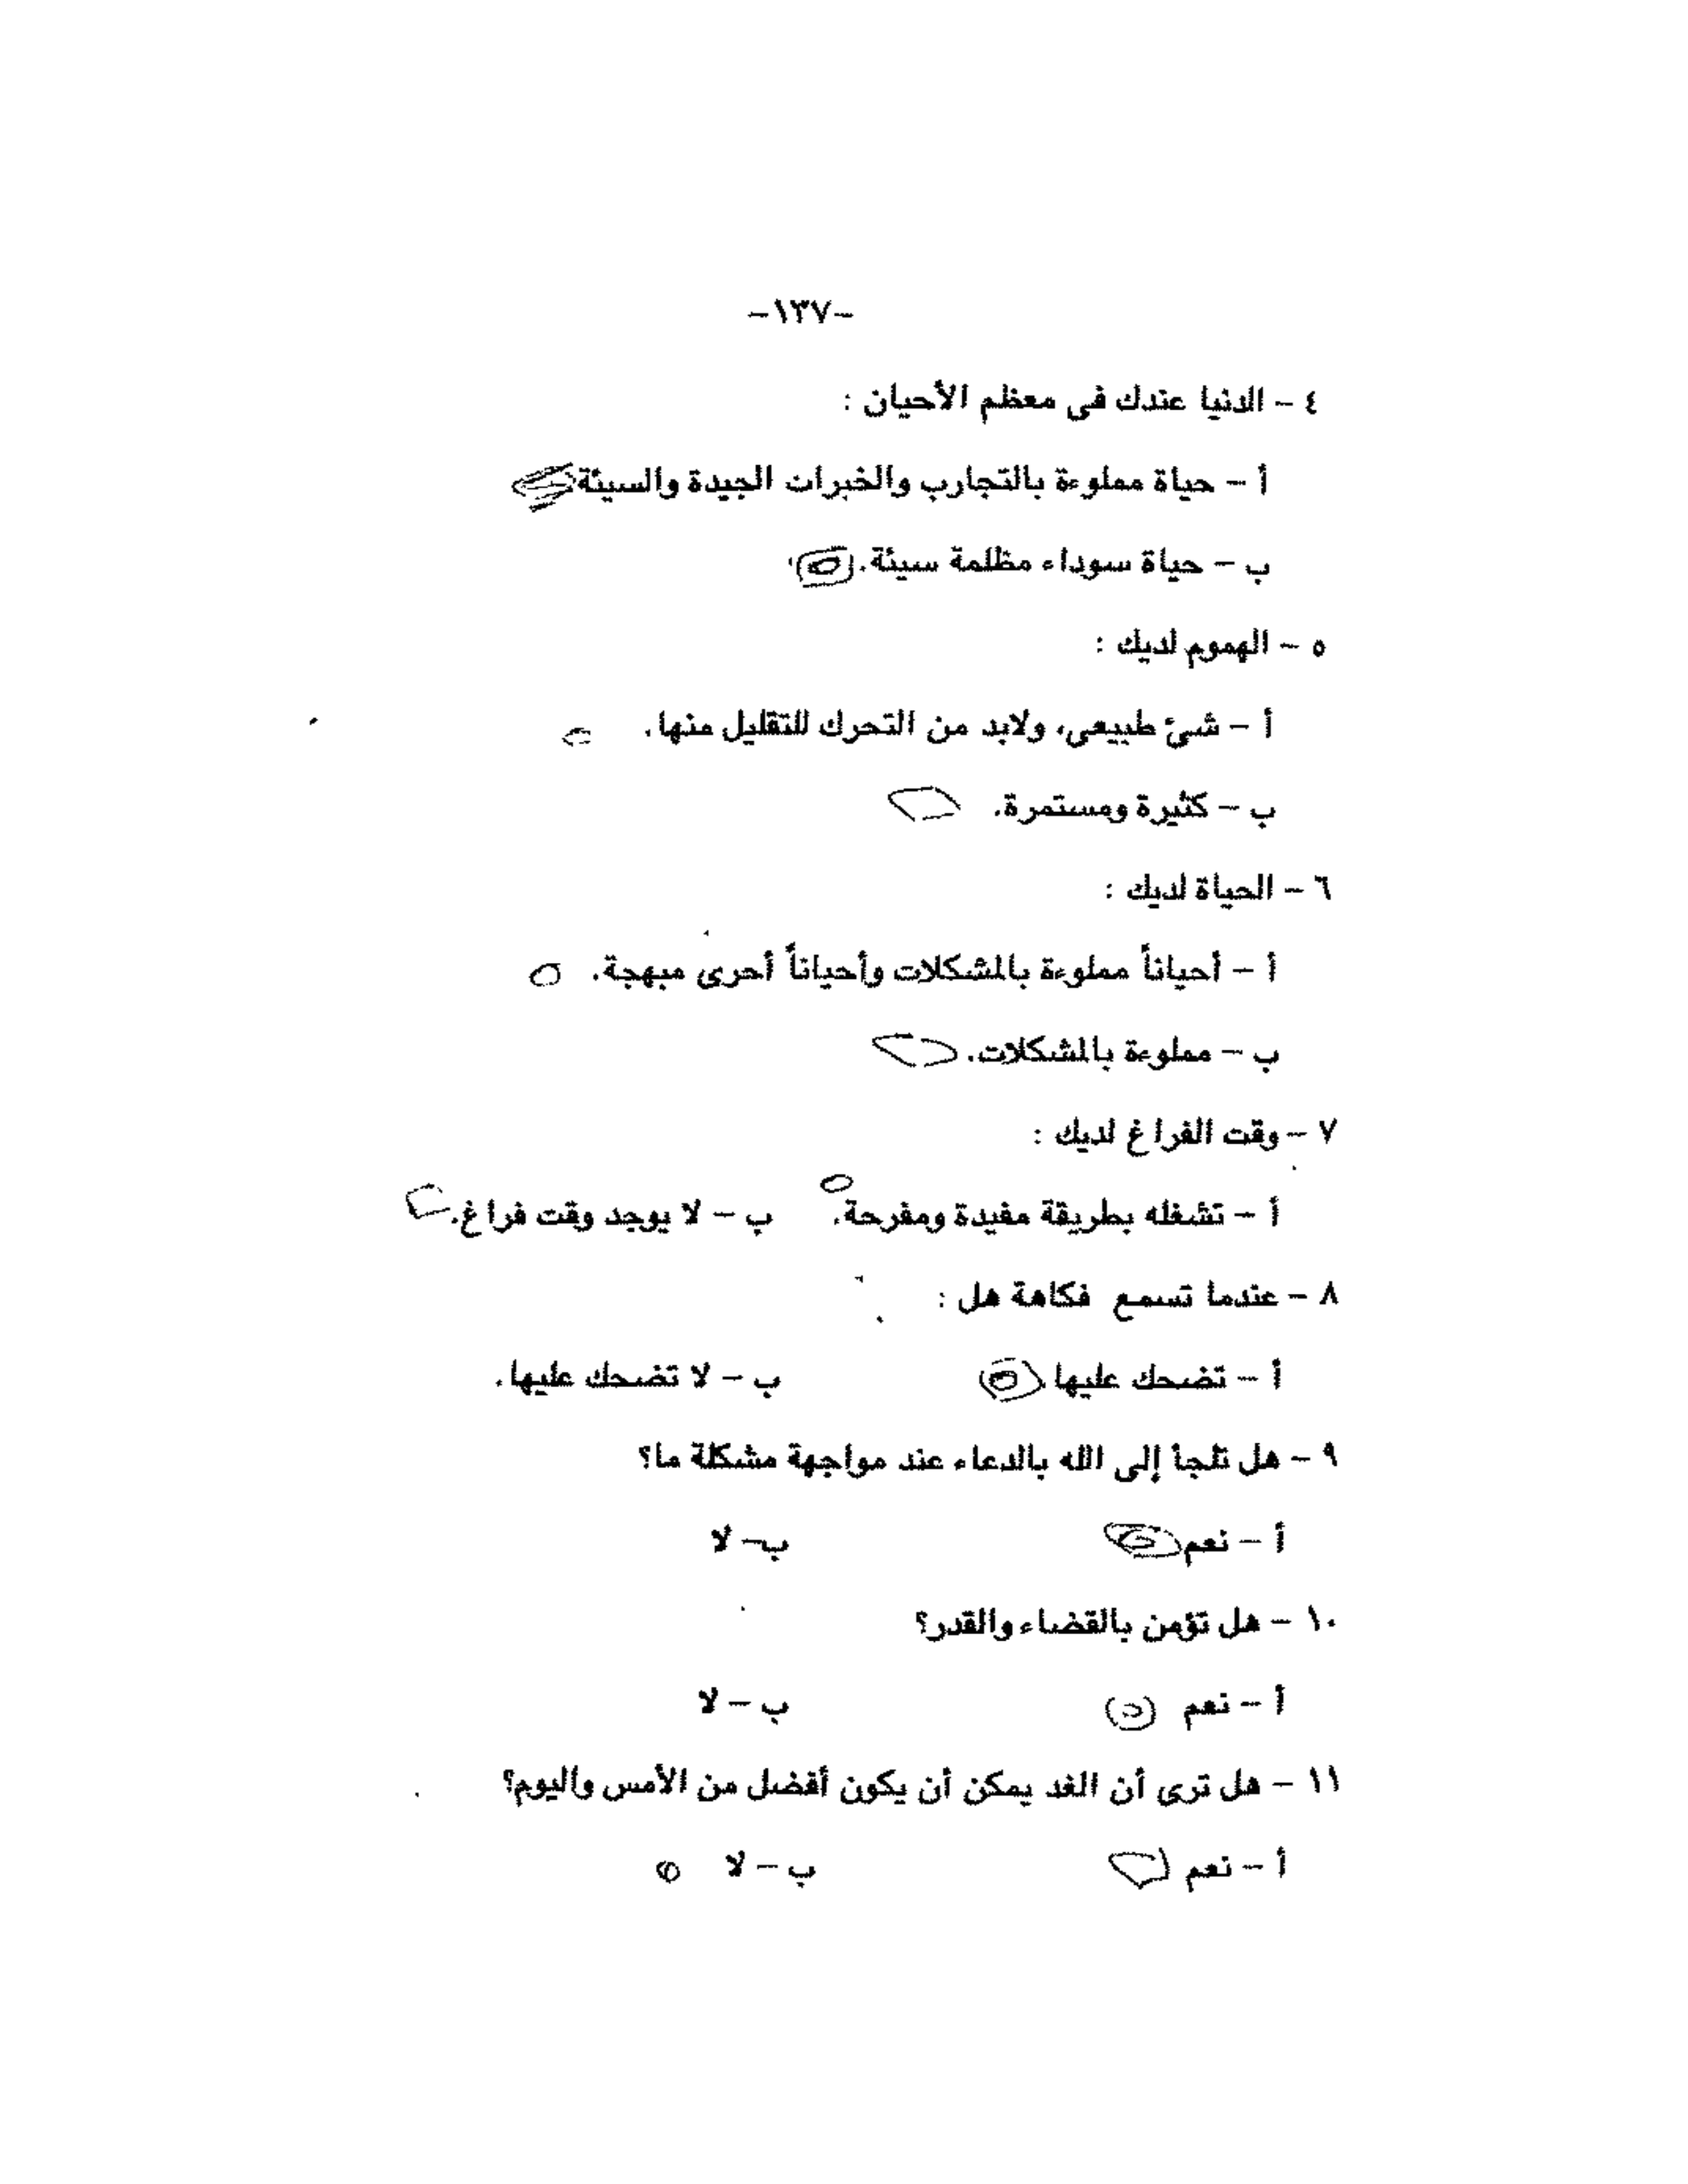 -١٣٧-
٤ - الدنيا عندك فى معظم الأحيان :
أ - حياة مملوءة بالتجارب والخبرات الجيدة والسيئة
ب - حياة سوداء مظلمة سيئة.
٥ - الهموم لديك :
أ - شئ طبيعى، ولابد من التحرك للتقليل منها.
ب - كثيرة ومستمرة.
٦ - الحياة لديك :
أ - أحياناً مملوءة بالمشكلات وأحياناً أحرى مبهجة.
ب - مملوءة بالمشكلات.
٧ - وقت الفراغ لديك :
أ - تشغله بطريقة مفيدة ومفرحة. ب - لا يوجد وقت فراغ.
٨ - عندما تسمع فكاهة هل :
أ - تضحك عليها. ب - لا تضحك عليها.
٩ - هل تلجأ إلى الله بالدعاء عند مواجهة مشكلة ما؟
أ - نعم ب- لا
١٠ - هل تؤمن بالقضاء والقدر؟
أ - نعم ب - لا
١١ - هل ترى أن الغد يمكن أن يكون أفضل من الأمس واليوم؟
أ - نعم ب - لا